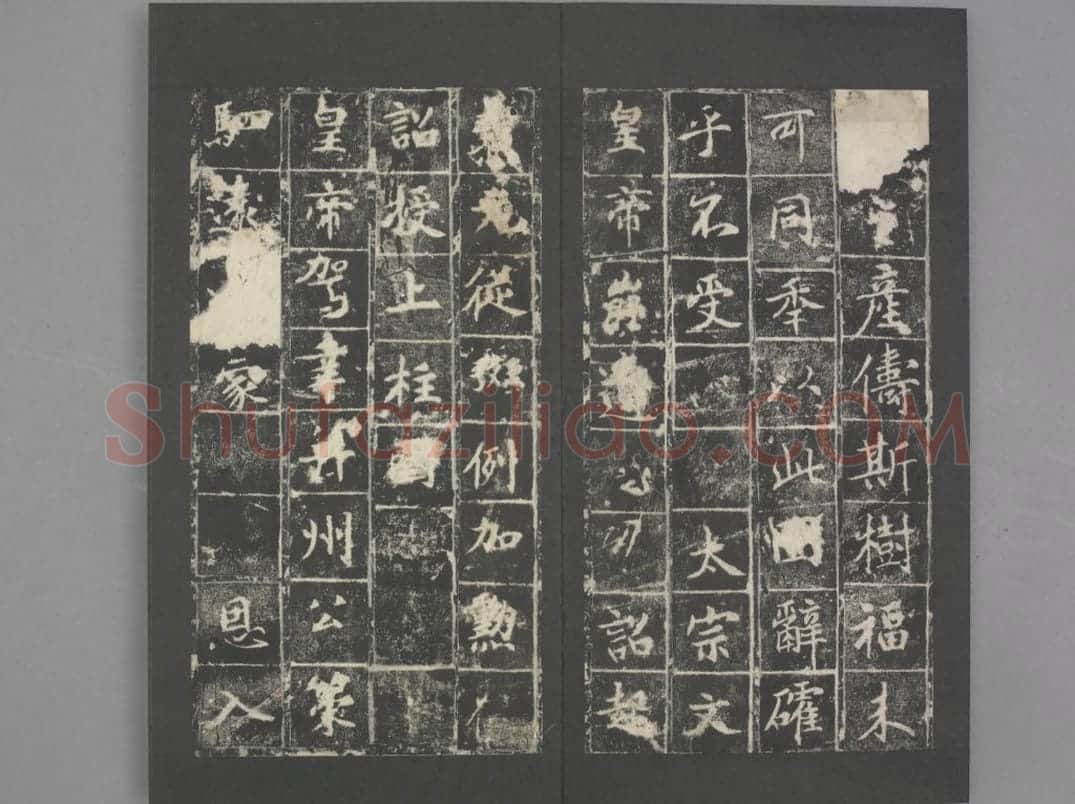 產儔斯樹福未
可同秊以此固辭確
乎不受太宗文
皇帝詔起
元從例加勲
詔授上柱國
皇帝駕幸并州公策
駟家恩入
Shufaziliao.COM